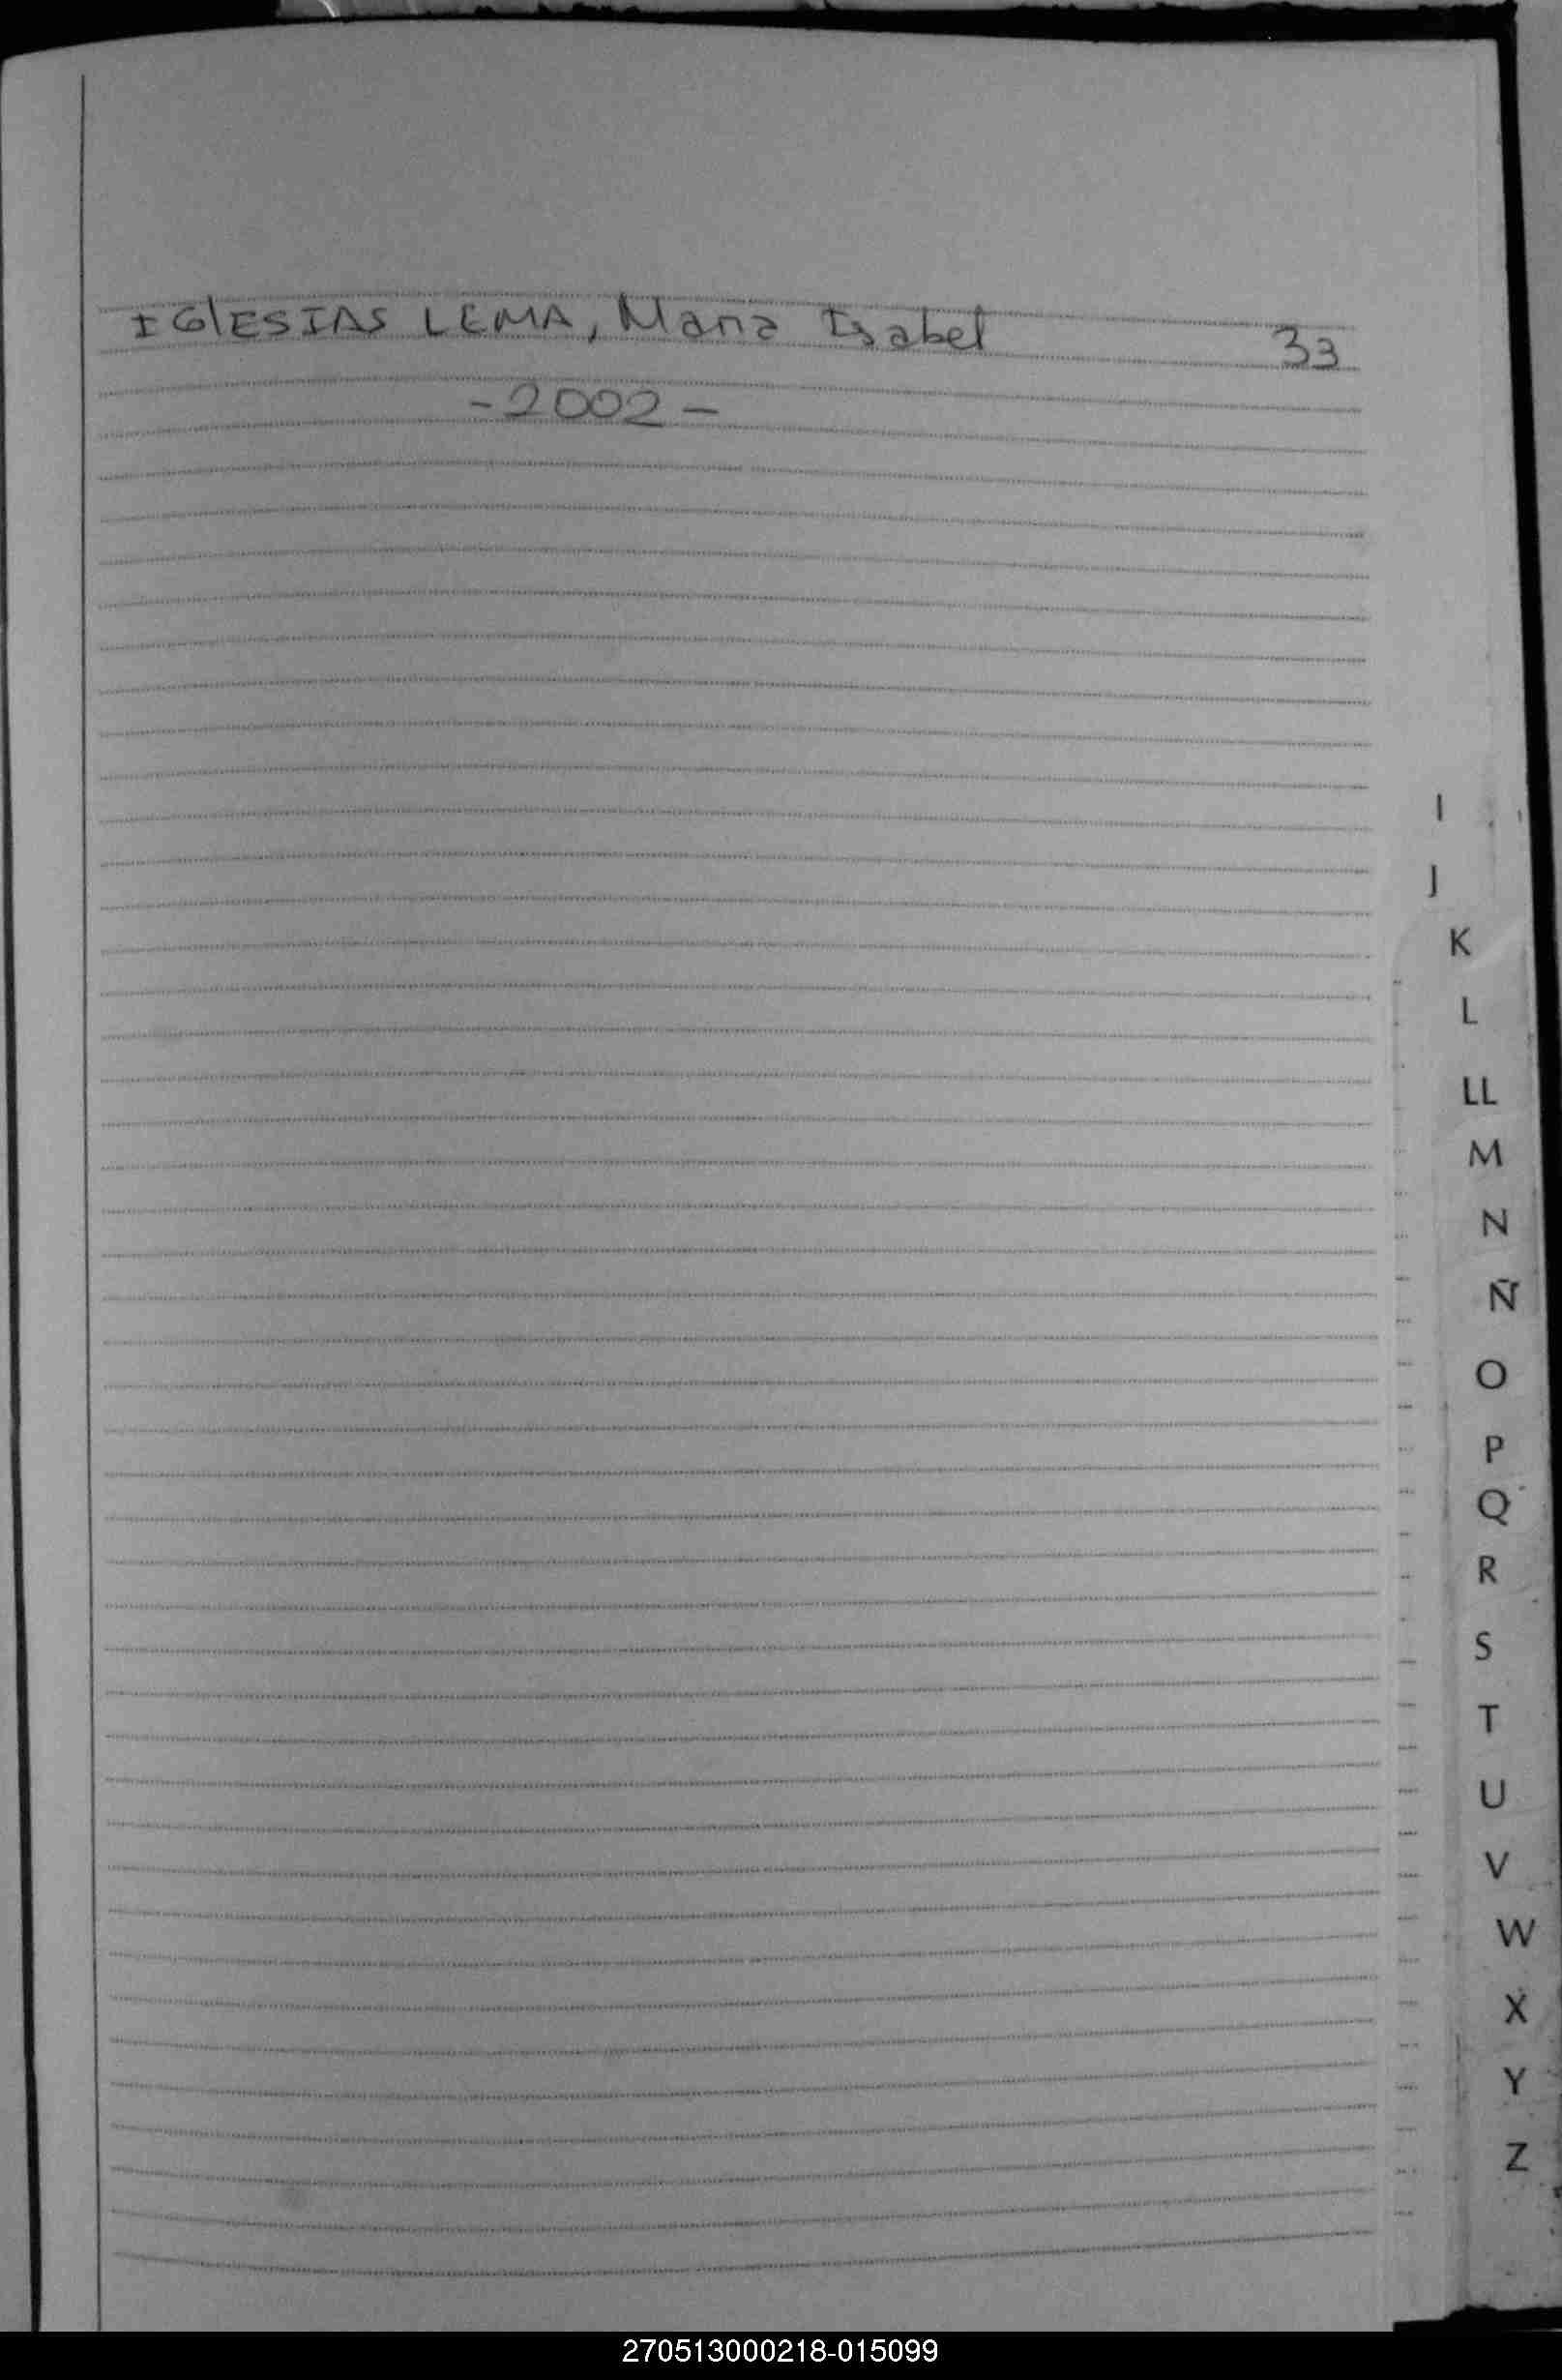 IGLESIAS LEMA, Maria Isabel 33
-2002-
I
J
K
L
LL
M
N
Ñ
O
P
Q
R
S
T
U
V
W
X
Y
Z
270513000218-015099